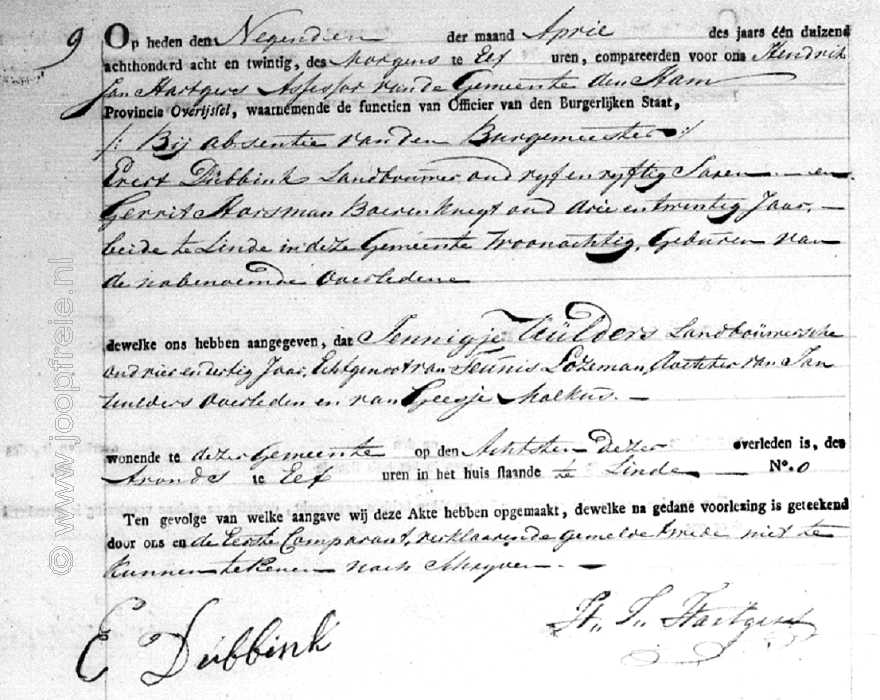 9 Op heden den Negendien der maand April des jaars één duizend
achthonderd acht en twintig, des Morgens te Elf uren, compareerden voor ons Hendrik
Jan Hartgers Assessor van de Gemeente den Ham
Provincie Overijssel, waarnemende de functien van Officier van den Burgerlijken Staat,
/: Bij absentie van den Burgemeester :/
Evert Dübbink Landbouwer oud vyf en vyftig Jaren en
Gerrit Horsman Boeren Knegt oud drie en twentig Jaar,
beide te Linde in deze Gemeente woonachtig, Geburen van
de nabenoemde overledene
dewelke ons hebben aangegeven, dat Jennigje Wülders Landboüwersche
oud vier en dertig Jaar, Echtgenoot van Teunis Lozeman, Dochter van Jan
Wulders Overleden en van Geesje Molkus. —
wonende te dezer Gemeente op den Achtsten dezer overleden is, des
Avonds te Elf uren in het huis staande te Linde — No. 0
Ten gevolge van welke aangave wij deze Akte hebben opgemaakt, dewelke na gedane voorlezing is geteekend
door ons en de Eerste Comparant, verklaarende gemelde twede niet te
kunnen tekenen noch schryven. —
E Dübbink
H. J. Hartgers
© www.joopfreie.nl